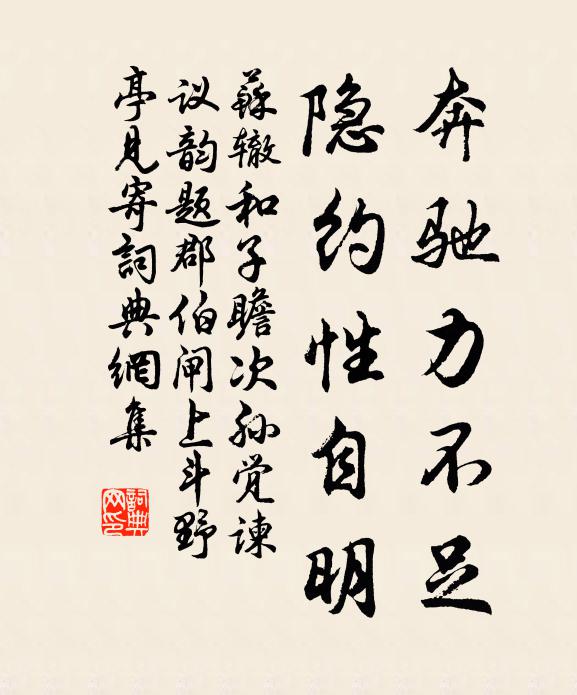 奔驰力不足
隐约性自明
蘇辙和子瞻次孙觉谏
议韵题郡伯闸上斗野
亭见寄詞典網集
詞典
网印